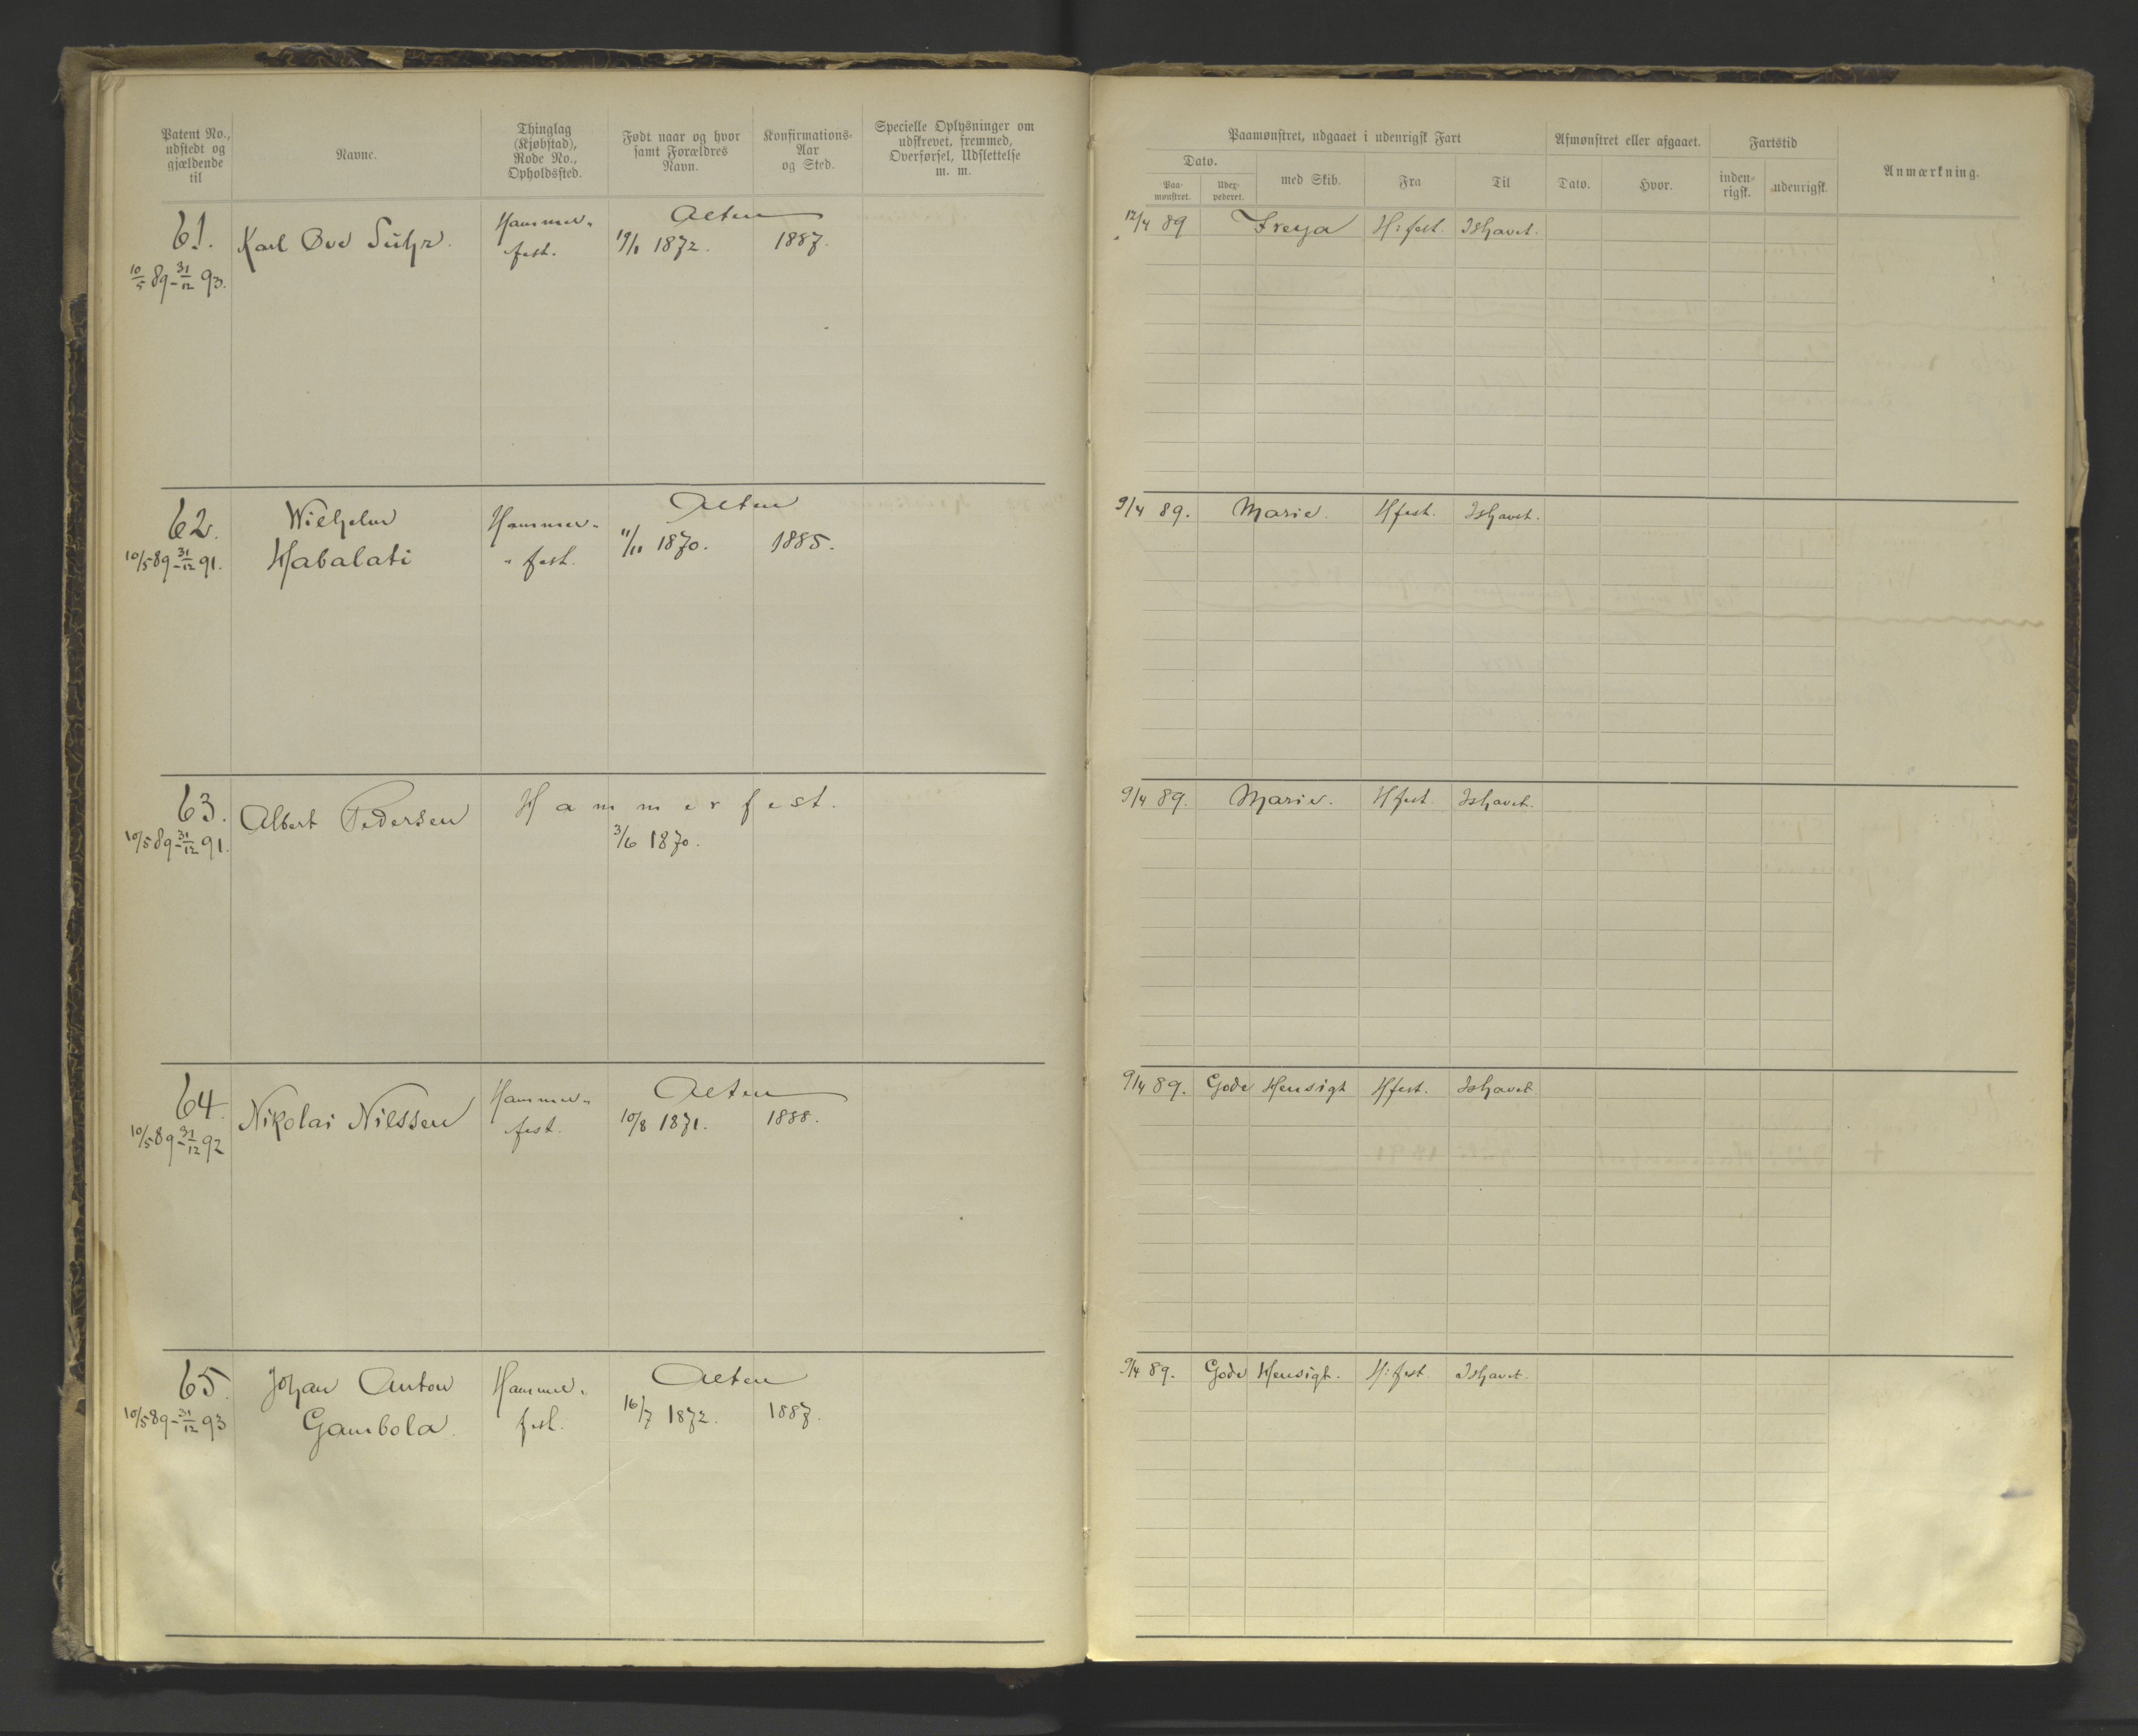 Patent No., udstedt og gjældende til
Navne.
Thinglag (Kjøbstad), Rode No., Opholdssted.
Født naar og hvor samt Forældres Navn.
Konfirmations-Aar og Sted.
Specielle Oplysninger om udskrevet, fremmed, Overførsel, Udslettelse m. m.
61.
10/5 89 - 31/12 93.
Karl Ove Suhr.
Hammer-
fest.
Alten
19/1 1872. 1887.
62.
10/5 89 - 31/12 91.
Wilhelm
Habalati
Hammer-
fest.
Alten
11/11 1870. 1885.
63.
10/5 89 - 31/12 91.
Albert Pedersen
Hammerfest.
3/6 1870.
64.
10/5 89 - 31/12 92
Nikolai Nilssen
Hammer-
fest.
Alten
10/8 1871. 1888.
65.
10/5 89 - 31/12 93
Johan Anton
Gambola.
Hammer-
fest.
Alten
16/7 1872. 1887.
Paamønstret, udgaaet i udenrigsk Fart
Afmønstret eller afgaaet.
Fartstid
Anmærkning.
Dato.
med Skib.
Fra
Til
Dato.
Hvor.
inden-rigsk.
udenrigsk.
Paa-mønstret.
Uder-pederet.
12/4 89 Freya H:fest. Ishavet.
9/4 89. Marie. Hfest. Ishavet.
9/4 89. Marie. Hfest. Ishavet.
9/4 89. Gode Hensigt Hfest. Ishavet
9/4 89. Gode Hensigt. H:fest Ishavet.